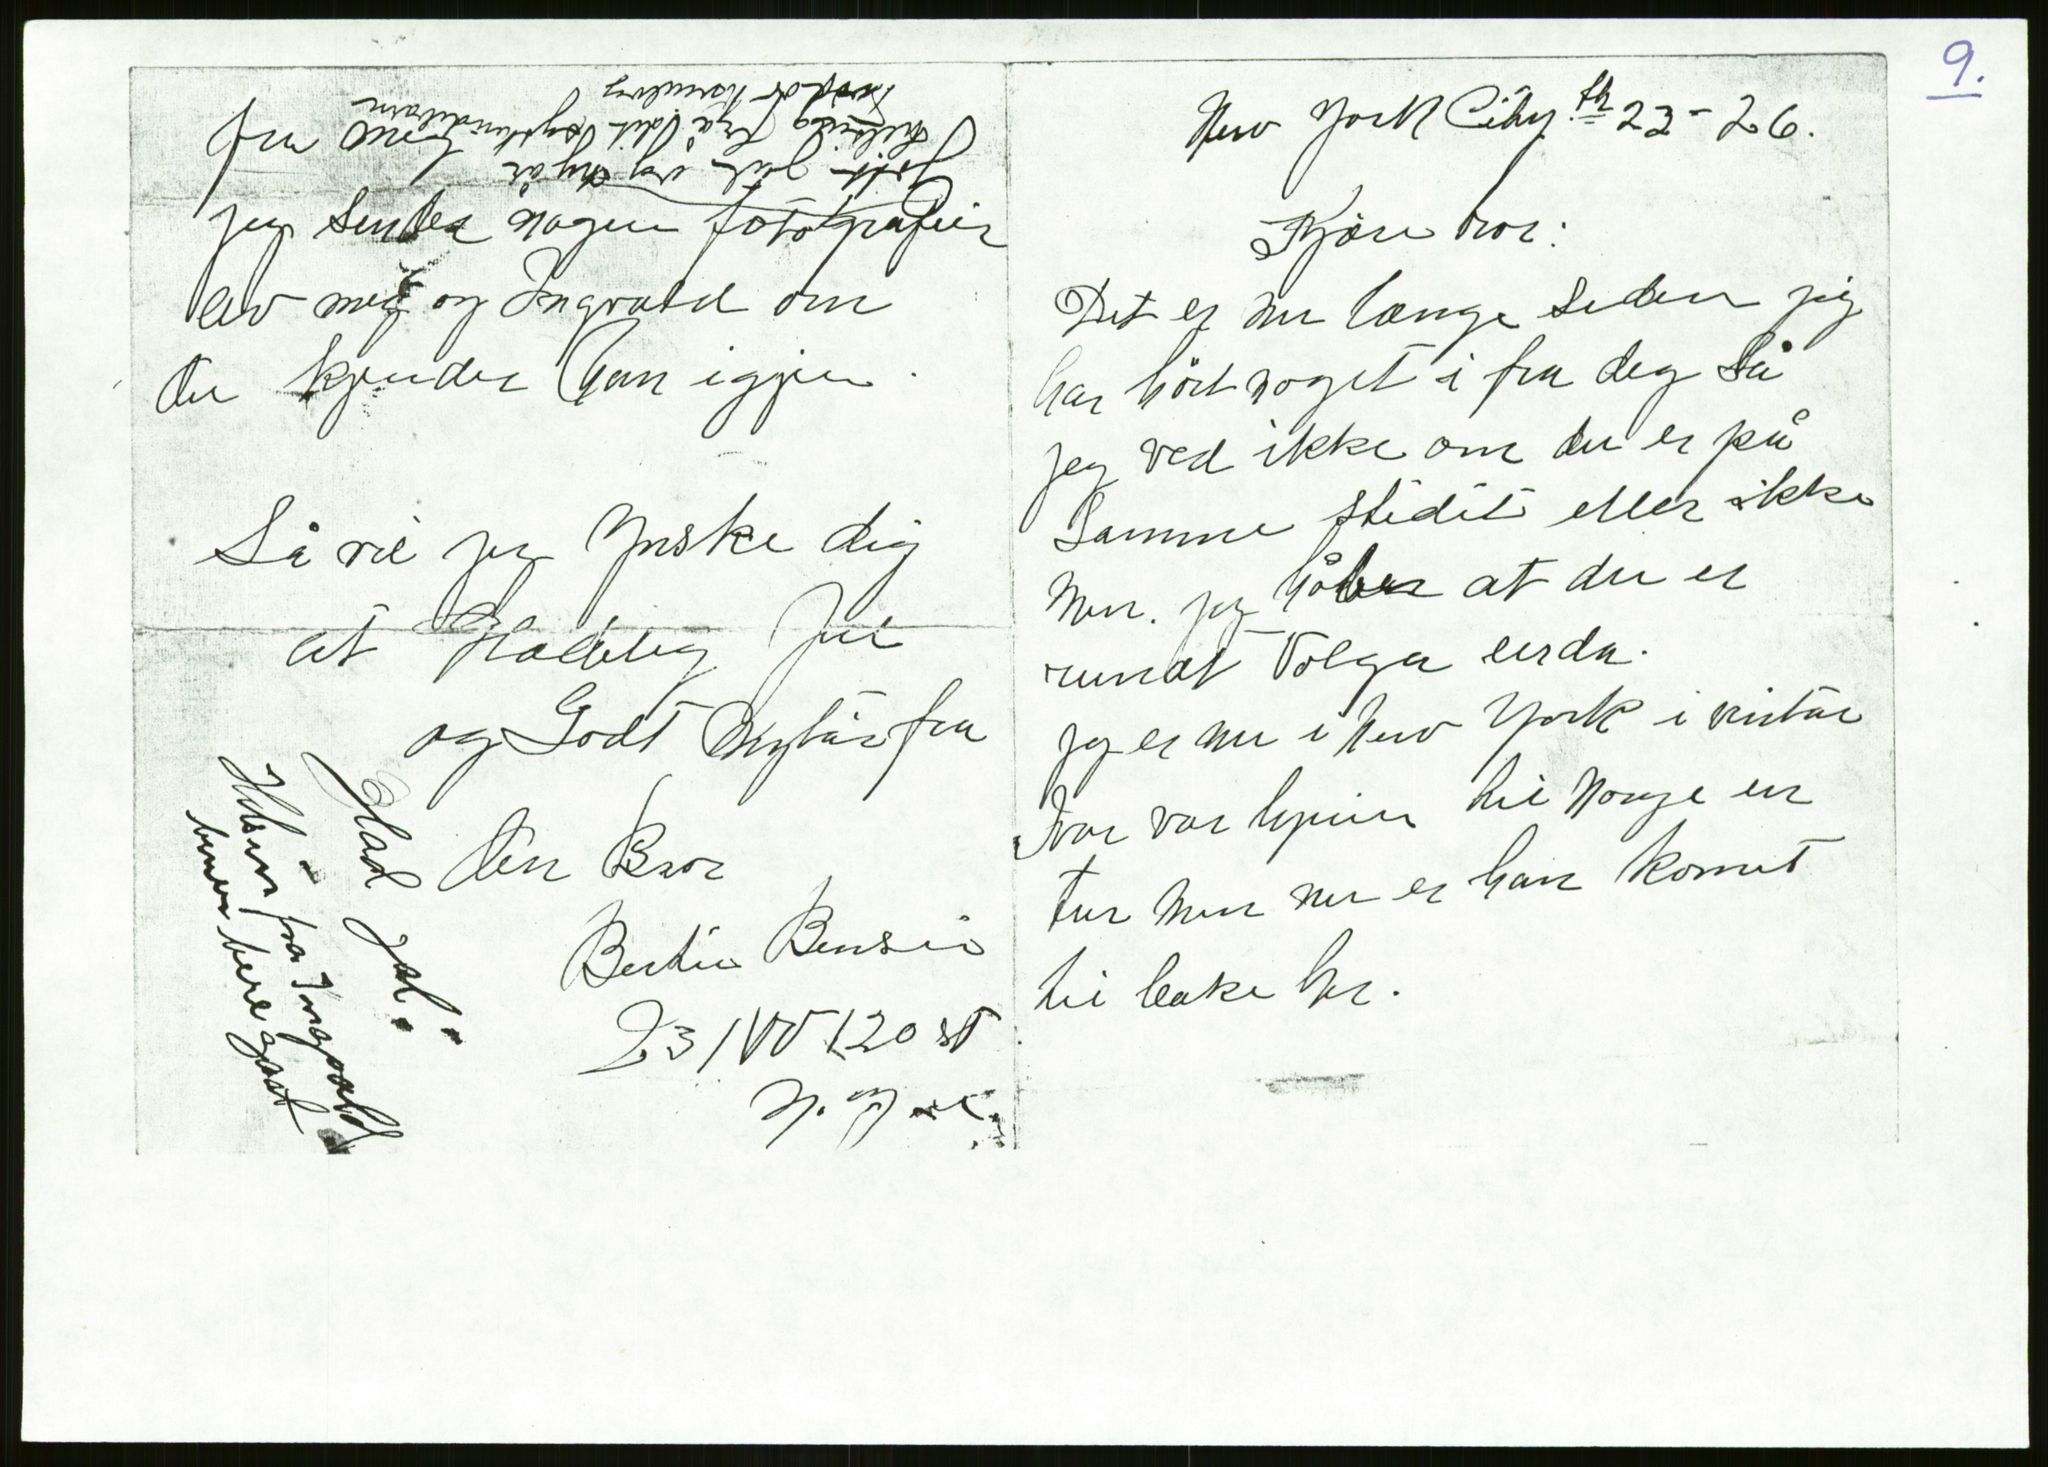 9.
New York City. th 23 - 26.
Kjære bror:
Det er nu længe siden jeg
har hört noget i fra deg Så
jeg ved ikke om du er på
samme stedit eller ikke
Men jeg håber at du er
rundt Volga enda.
jeg er nu i New York i vintar
Ivar var hjem til Norge en
tur Men nu er han komet
til bake her.
fra
jeg sender nogen fotografier
av meg og Ingvald om
du kjender han igjen.
Så vil jeg Ynske dig
et Glædelig Jul
og Godt Nytår fra
din Bror
Bertin Bensin
23 / W 120 st
N. York.
Glad jol.
Helsing fra Ingvald
lever bere godt
Gott Jul og nyår
Helsing frå Ditt syskendebarn